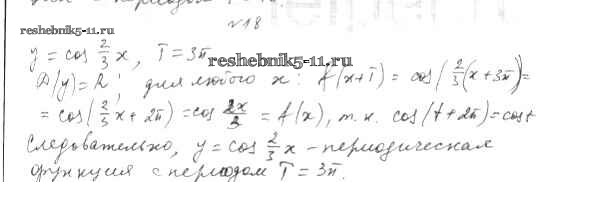 №18
reshebnik5-11.ru
y = cos 2/3 x, T = 3π
reshebnik5-11.ru
D(y) = R; для любого x: f(x+T) = cos(2/3(x+3π)) =
= cos(2/3 x + 2π) = cos 2x/3 = f(x), т.к. cos(t+2π) = cos t
Следовательно, y = cos 2/3 x - периодическая
функция с периодом T = 3π.